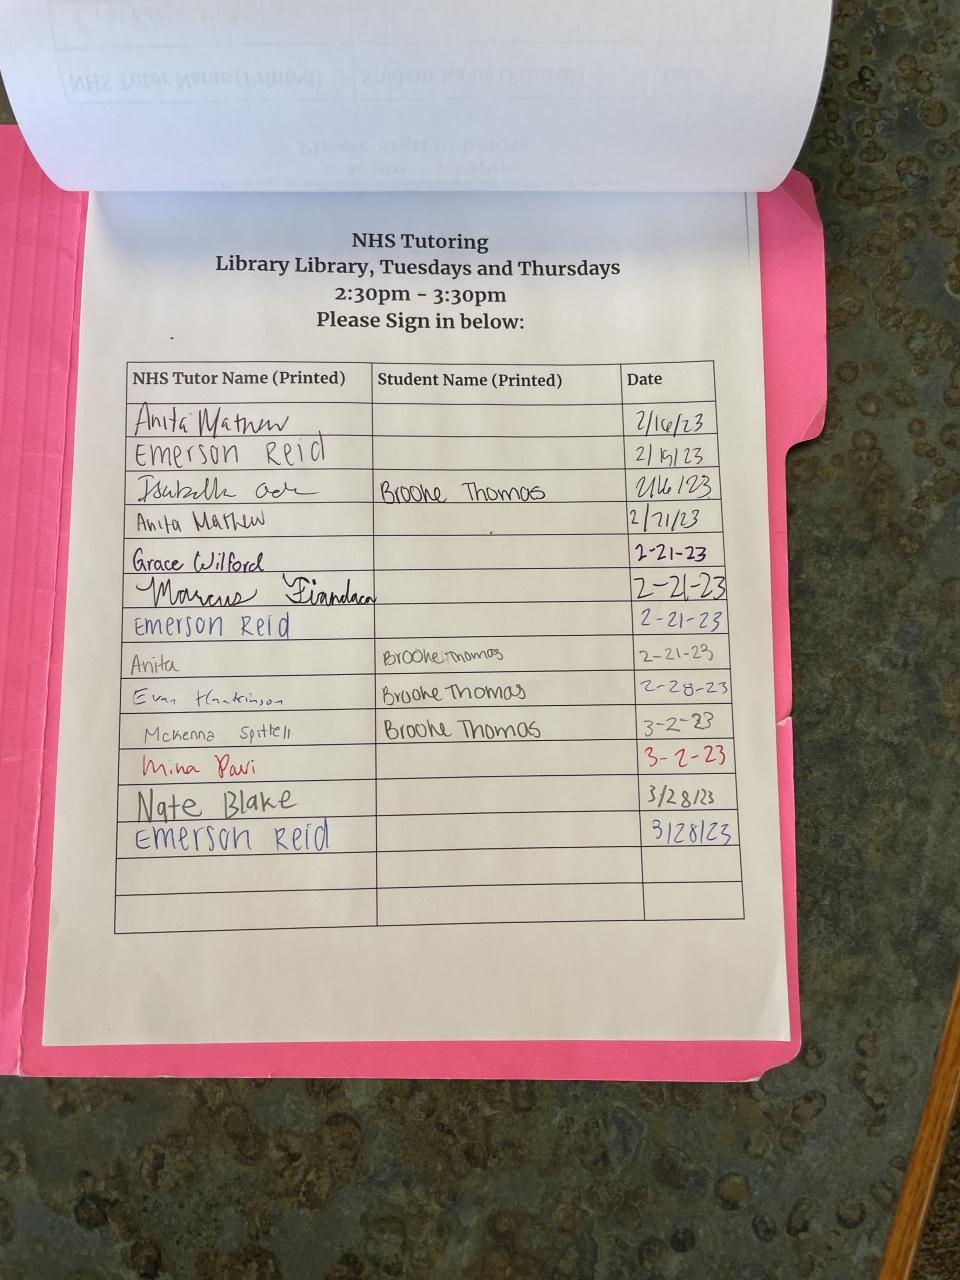 NHS Tutor Name (Printed) Student Name (Printed) Date
Please Sign in below:
2:30pm - 3:30pm
NHS Tutoring
Library Library, Tuesdays and Thursdays
2:30pm - 3:30pm
Please Sign in below:
NHS Tutor Name (Printed) Student Name (Printed) Date
Anita Mathew 2/16/23
Emerson Reid
Isabella Brooke Thomas 2/16/23
Anita Mathew 2/21/23
Grace Wilford 2-21-23
Marcus Fiandaca 2-21-23
Emerson Reid 2-21-23
Anita Brooke Thomas 2-21-23
Evan Brooke Thomas 2-28-23
Mckenna Spittell Brooke Thomas 3-2-23
Mina Pavi 3-2-23
Nate Blake 3/28/23
Emerson Reid 3/28/23